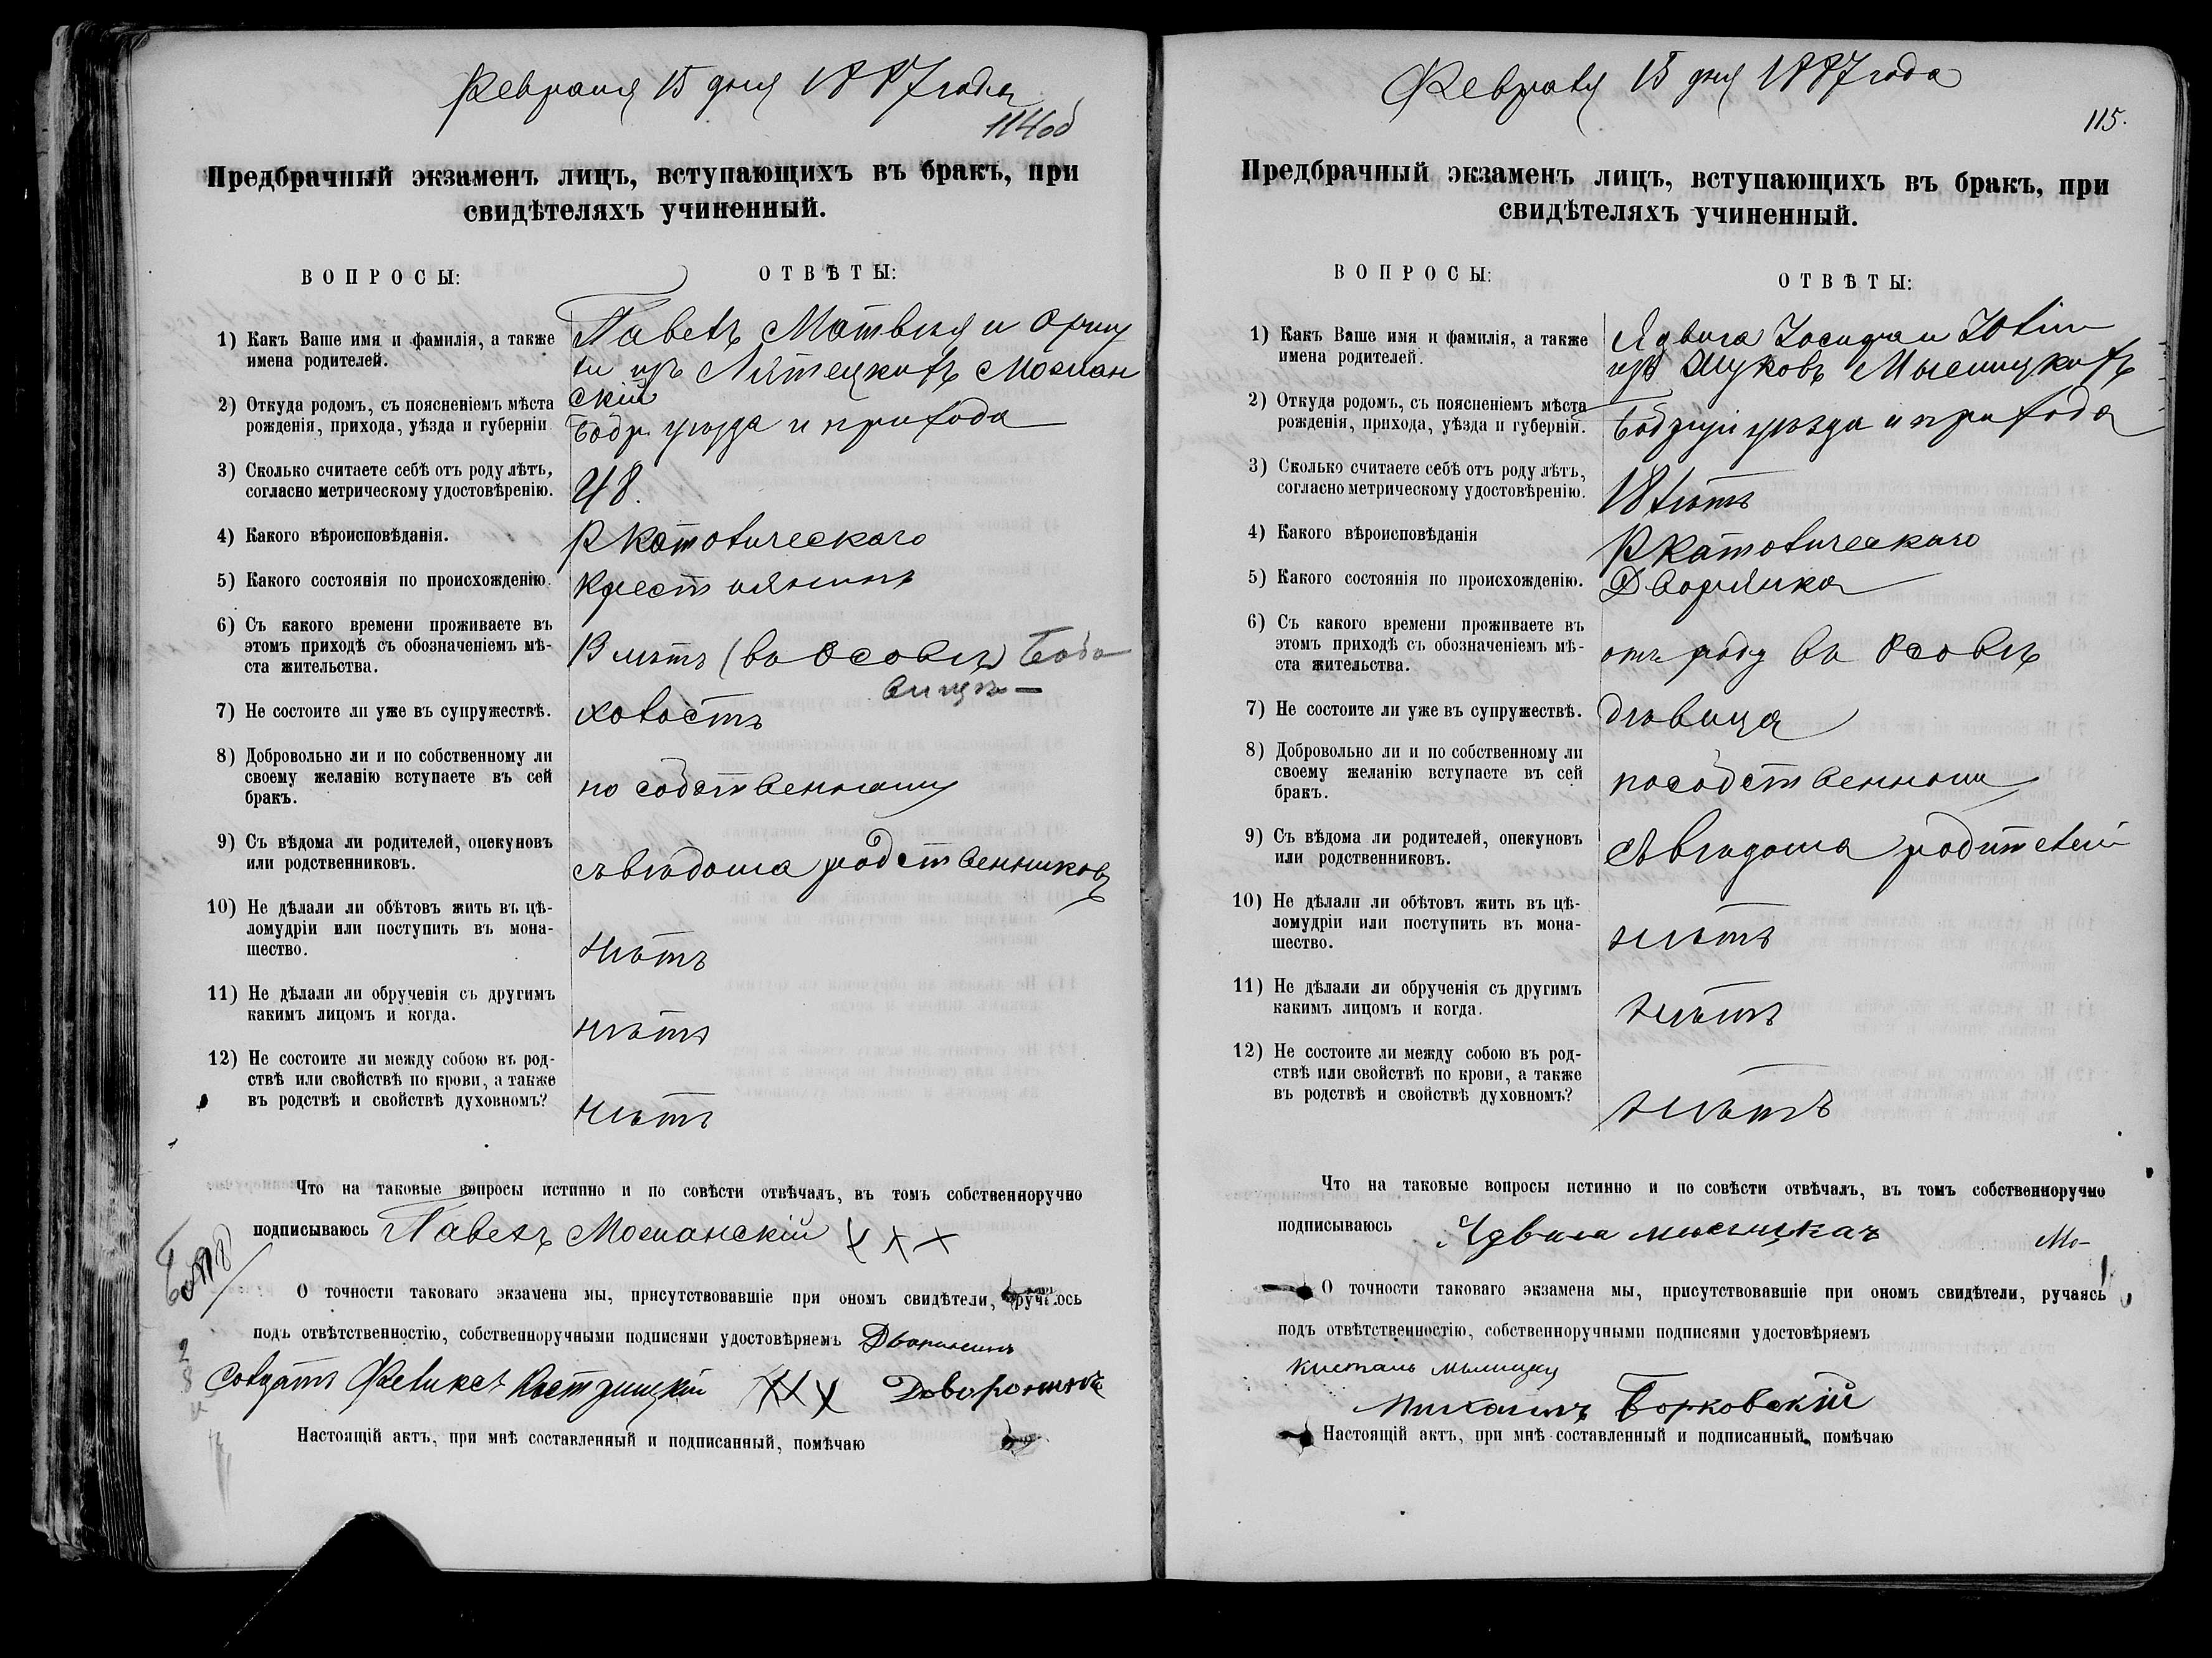 Февраля 15 дня 1887 года
114об
Предбрачный экзаменъ лицъ, вступающихъ въ бракъ, при
свидѣтеляхъ учиненный.
ВОПРОСЫ:
ОТВѢТЫ:
1) Какъ Ваше имя и фамилія, а также
имена родителей.
Павелъ Матвѣя и
изъ
скій
2) Откуда родомъ, съ поясненіемъ мѣста
рожденія, прихода, уѣзда и губерніи.
Бобр. уѣзда и прихода
3) Сколько считаете себѣ отъ роду лѣтъ,
согласно метрическому удостовѣренію.
48.
4) Какого вѣроисповѣданія.
Р Католическаго
5) Какого состоянія по происхожденію.
Крестьянинъ
6) Съ какого времени проживаете въ
этомъ приходѣ съ обозначеніемъ мѣ-
ста жительства.
лѣтъ (въ Осовѣ)
7) Не состоите ли уже въ супружествѣ.
холостъ
8) Добровольно ли и по собственному ли
своему желанію вступаете въ сей
бракъ.
по собственному
9) Съ вѣдома ли родителей, опекуновъ
или родственниковъ.
съ вѣдома родственниковъ
10) Не дѣлали ли обѣтовъ жить въ цѣ-
ломудріи или поступить въ мона-
шество.
нѣтъ
11) Не дѣлали ли обрученія съ другимъ
какимъ лицомъ и когда.
нѣтъ
12) Не состоите ли между собою въ род-
ствѣ или свойствѣ по крови, а также
въ родствѣ и свойствѣ духовномъ?
нѣтъ
Что на таковые вопросы истинно и по совѣсти отвѣчалъ, въ томъ собственноручно
подписываюсь Павелъ ххх
О точности таковаго экзамена мы, присутствовавшіе при ономъ свидѣтели, ручаюсь
подъ отвѣтственностію, собственноручными подписями удостовѣряемъ Дворянинъ
Солдатъ Феликсъ ххх Дворянинъ
Настоящій актъ, при мнѣ составленный и подписанный, помѣчаю
Февраля 15 дня 1887 года
115.
Предбрачный экзаменъ лицъ, вступающихъ въ бракъ, при
свидѣтеляхъ учиненный.
ВОПРОСЫ:
ОТВѢТЫ:
1) Какъ Ваше имя и фамилія, а также
имена родителей.
Ядвига Іосифа и Юліи
изъ Жуковъ
2) Откуда родомъ, съ поясненіемъ мѣста
рожденія, прихода, уѣзда и губерніи.
уѣзда и прихода
3) Сколько считаете себѣ отъ роду лѣтъ,
согласно метрическому удостовѣренію.
18 лѣтъ
4) Какого вѣроисповѣданія
Р Католическаго
5) Какого состоянія по происхожденію.
Дворянка
6) Съ какого времени проживаете въ
этомъ приходѣ съ обозначеніемъ мѣ-
ста жительства.
отъ роду въ Осовѣ
7) Не состоите ли уже въ супружествѣ.
дѣвица
8) Добровольно ли и по собственному ли
своему желанію вступаете въ сей
бракъ.
по собственному
9) Съ вѣдома ли родителей, опекуновъ
или родственниковъ.
съ вѣдома родителей
10) Не дѣлали ли обѣтовъ жить въ цѣ-
ломудріи или поступить въ мона-
шество.
нѣтъ
11) Не дѣлали ли обрученія съ другимъ
какимъ лицомъ и когда.
нѣтъ
12) Не состоите ли между собою въ род-
ствѣ или свойствѣ по крови, а также
въ родствѣ и свойствѣ духовномъ?
нѣтъ
Что на таковые вопросы истинно и по совѣсти отвѣчалъ, въ томъ собственноручно
подписываюсь Ядвига
О точности таковаго экзамена мы, присутствовавшіе при ономъ свидѣтели, ручаясь
подъ отвѣтственностію, собственноручными подписями удостовѣряемъ
Борковскій
Настоящій актъ, при мнѣ составленный и подписанный, помѣчаю